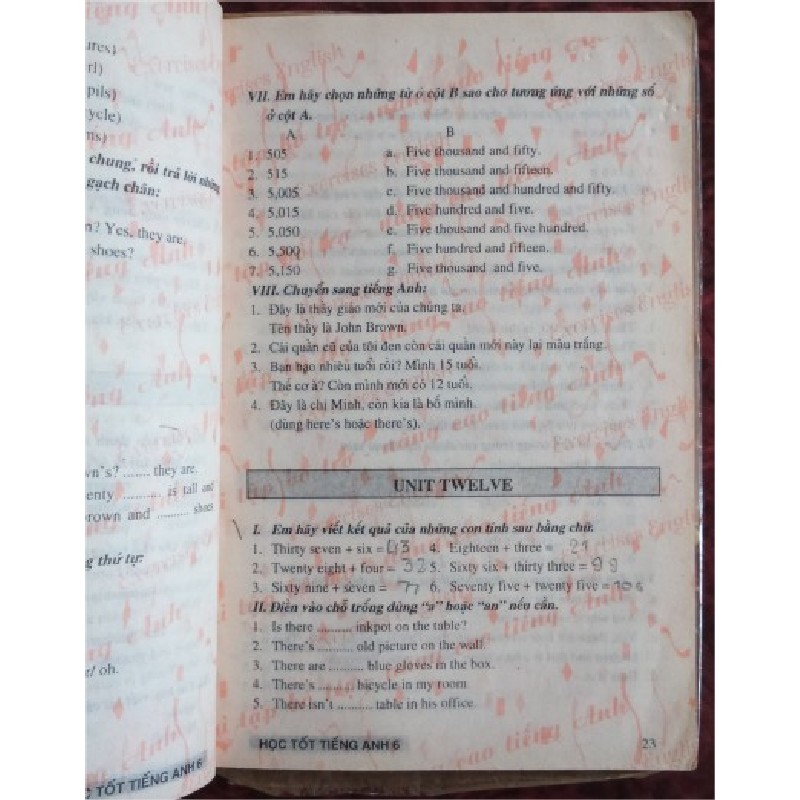 ures)
rl)
pils)
ycle)
ns)
chung, rồi trả lời những
gạch chân;
n? Yes, they are.
shoes?
wn's? ........ they are.
enty .......... is tall and
brown and ......... shoes
g thứ tự:
t/ oh.
HỌC TỐT TIẾNG ANH 6
VII. Em hãy chọn những từ ở cột B sao cho tương ứng với những số
ở cột A.
A B
1. 505 a. Five thousand and fifty.
2. 515 b. Five thousand and fifteen.
3. 5,005 c. Five thousand and hundred and fifty.
4. 5,015 d. Five hundred and five.
5. 5,050 e. Five thousand and five hundred.
6. 5,500 f. Five hundred and fifteen.
7. 5,150 g. Five thousand and five.
VIII. Chuyển sang tiếng Anh:
1. Đây là thầy giáo mới của chúng ta.
Tên thầy là John Brown.
2. Cái quần cũ của tôi đen còn cái quần mới này lại màu trắng.
3. Bạn bao nhiêu tuổi rồi? Mình 15 tuổi.
Thế cơ à? Còn mình mới có 12 tuổi.
4. Đây là chị Minh, còn kia là bố mình.
(dùng here's hoặc there's).
UNIT TWELVE
I. Em hãy viết kết quả của những con tính sau bằng chữ.
1. Thirty seven + six = 43 4. Eighteen + three = 21
2. Twenty eight + four = 32 5. Sixty six + thirty three = 99
3. Sixty nine + seven = 77 6. Seventy five + twenty five =
II. Điền vào chỗ trống dùng "a" hoặc "an" nếu cần.
1. Is there .......... inkpot on the table?
2. There's .......... old picture on the wall.
3. There are .......... blue gloves in the box.
4. There's .......... bicycle in my room.
5. There isn't .......... table in his office.
HỌC TỐT TIẾNG ANH 6 23